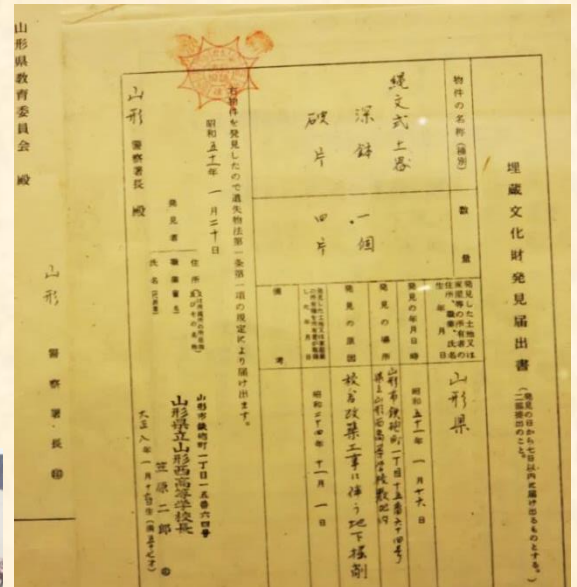 埋蔵文化財発見届出書
(発見の日から七日以内に届け出るものとする。
二部提出のこと。)
物件の名称(種別)
数量
縄文式土器
深鉢
一個
破片
四片
発見した土地又は
住所、職業、氏名
生年月日
山形県
発見の年月日時
昭和五十一年一月十六日
発見の場所
山形市鉄砲町一丁目十五番六十四号
県立山形西高等学校敷地内
発見の原因
校舎改築工事に伴う地下掘削
昭和二十四年十一月一日
備考
右物件を発見したので遺失物法第一条第一項の規定により届け出ます。
昭和五十一年一月二十日
発見者
住所
職業
氏名
山形市鉄砲町一丁目一五番六四号
山形県立山形西高等学校長
笠原二郎
山形
警察署長 殿
山形 警察署長 ㊞
山形県教育委員会 殿